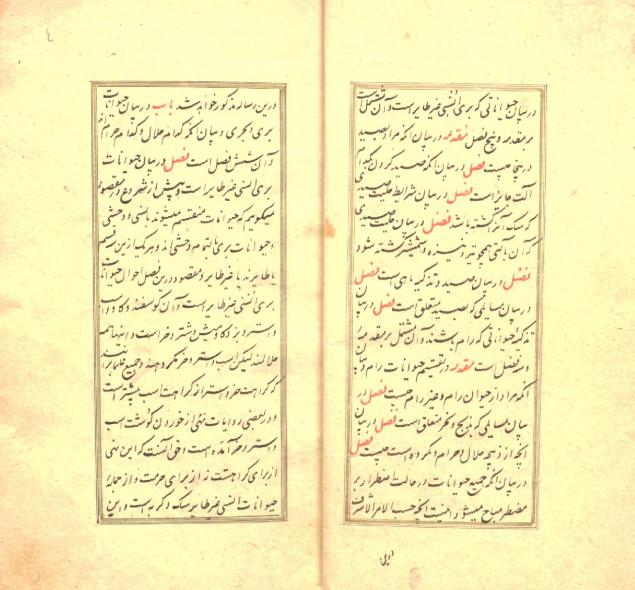 در بیان حیواناتی که بری انسی غیر طایر است و آن مشتمل است
بر مقدمه و پنج فصل مقدمه در بیان آنکه مراد از صید
درینجا چیست فصل در بیان آنکه صید کردن بکدام
آلت جایز است فصل در بیان شرایط حلیت صیدی
که سگ آنرا کشته باشد فصل در بیان حلیت صیدی
که آن بآلتی همچو تیر و نیزه و شمشیر کشته شود
فصل در بیان صید و تذکیه ماهی است فصل
در بیان مسایلی که بصید متعلق است فصل در بیان
تذکیه حیواناتی که رام باشند و آن مشتمل بر مقدمه
و فصل است مقدمه در تقسیم حیوانات رام و بیان
آنکه مراد از حیوان رام و غیر رام چیست فصل در
بیان مسایلی که بذبح و نحر متعلق است فصل در بیان
آنچه از ذبیحه حلال و حرام و مکروه است چیست فصل
در بیان آنکه جمیع حیوانات در حالت اضطرار بر
مضطر مباح میشود اینست آنچه حسب الامر الاشرف
درین رساله مذکور خواهد شد باب در بیان حیوانات
بری و بحری و بیان آنکه کدام حلال و کدام حرام
و آن شش فصل است فصل در بیان حیوانات
بری انسی غیر طایر است و پیش از شروع در مقصود
میگویم که حیوانات منقسم میشوند بانسی و وحشی
و حیوانات بری انسی اند و وحشی اند و هر یک ازین دو قسم
یا طایرند یا غیر طایر و مقصود درین فصل احوال حیوانات
بری انسی غیر طایر است و آن گوسفند و گاو و اسب
و استر و بز و گاومیش و شتر و خر است و اینها همه
حلالند لیکن اسب و استر و خر مکروهند و جمیع علما برانند
که کراهت خر و استر از کراهت اسب بیشتر است
و در بعضی روایات نهی از خوردن گوشت اسب
و استر و خر آمده است و حق آنست که این نهی
از برای کراهت است نه از برای حرمت و از جمله
حیوانات انسی غیر طایر سگ و گربه است و این